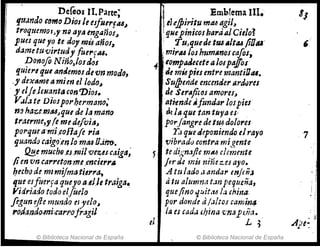 Defeos II. Parte;
quando como Dios te esfuerças,
troquemos, y no aya engaños,
pues que yo te doy mis años,
dame tu virtud y fuerças.
Donoso Niño, los dos
quiere que andemos de vn modo,
y dexame a mi en el lodo,
y el se leuanta con Dios.
Vala te Dios por hermano,
no haze mas, que de la mano
traerme, y se me desvia,
porque a mi costa se ria
quando caigo en lo mas llano.
Que mucho es mil vezes caiga,
si en vn carreton me encierra
hecho de mi misma tierra,
que es fuerça que yo a el le traiga.
Vidriado todo el suelo
segun esse mundo es yelo,
rodando mi carro fragil
el
Emblema III.
83
el espiritu mas agil,
que pinicos hará al Cielo?
Tu, que de tus altas sillas
miras los humanos casos,
compadecete a los passos
de mis pies entre mantillas.
Suspende encender ardores
de Seraficos amores,
atiende à fundar los pies
de la que tan tuya es,
por sangre de tus dolores
Ya que deponiendo el rayo
vibrado contra mi gente
te dignaste mas clemente
ser de mis niñezes ayo.
A tu lado a andar enseña
à tu alumna tan pequeña,
que sino quitas la china
por donde à saltos camina
la es cada china vna peña.
L 3
Ape-
5
6
7
4
© Biblioteca Nacional de España
© Biblioteca Nacional de España